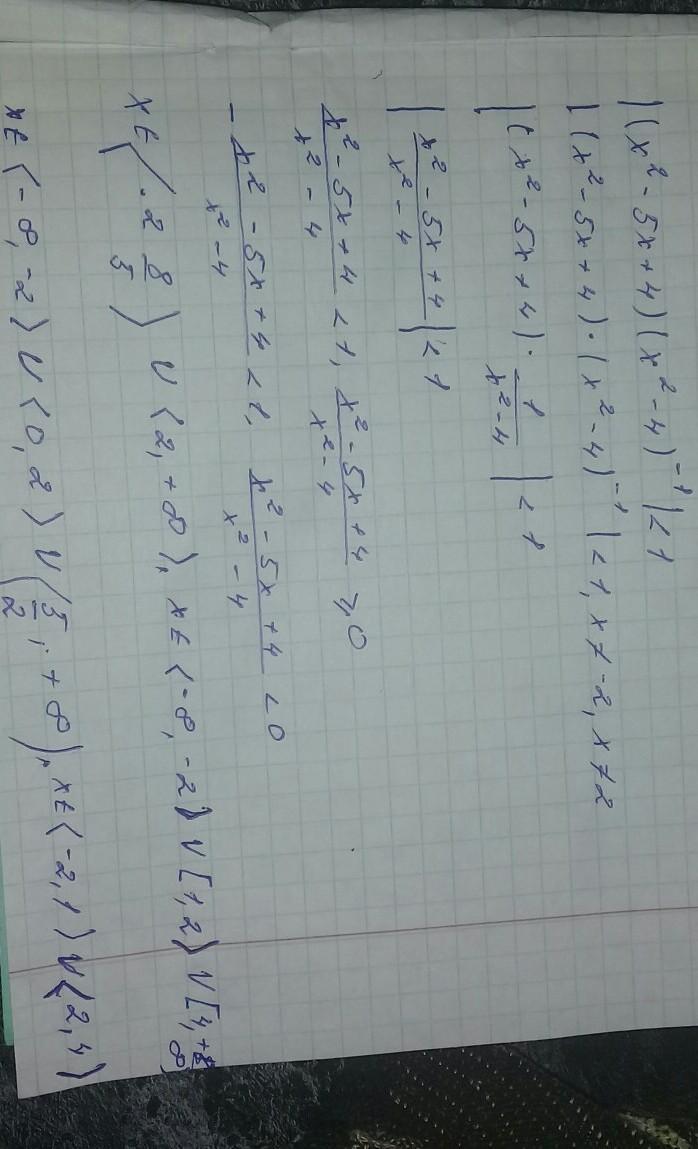 |(x² - 5x + 4)(x² - 4)⁻¹| < 1
|(x² - 5x + 4) · (x² - 4)⁻¹| < 1, x ≠ -2, x ≠ 2
|(x² - 5x + 4) · 1/(x² - 4)| < 1
|(x² - 5x + 4)/(x² - 4)| < 1
(x² - 5x + 4)/(x² - 4) < 1, (x² - 5x + 4)/(x² - 4) ⩾ 0
- (x² - 5x + 4)/(x² - 4) < 1, (x² - 5x + 4)/(x² - 4) < 0
x ∈ ⟨-2 8/5⟩ ∪ ⟨2, +∞⟩, x ∈ ⟨-∞, -2⟩ ∪ [1, 2⟩ ∪ [4, +∞⟩
x ∈ ⟨-∞, -2⟩ ∪ ⟨0, 2⟩ ∪ ⟨5/2, +∞⟩, x ∈ ⟨-2, 1⟩ ∪ ⟨2, 4⟩